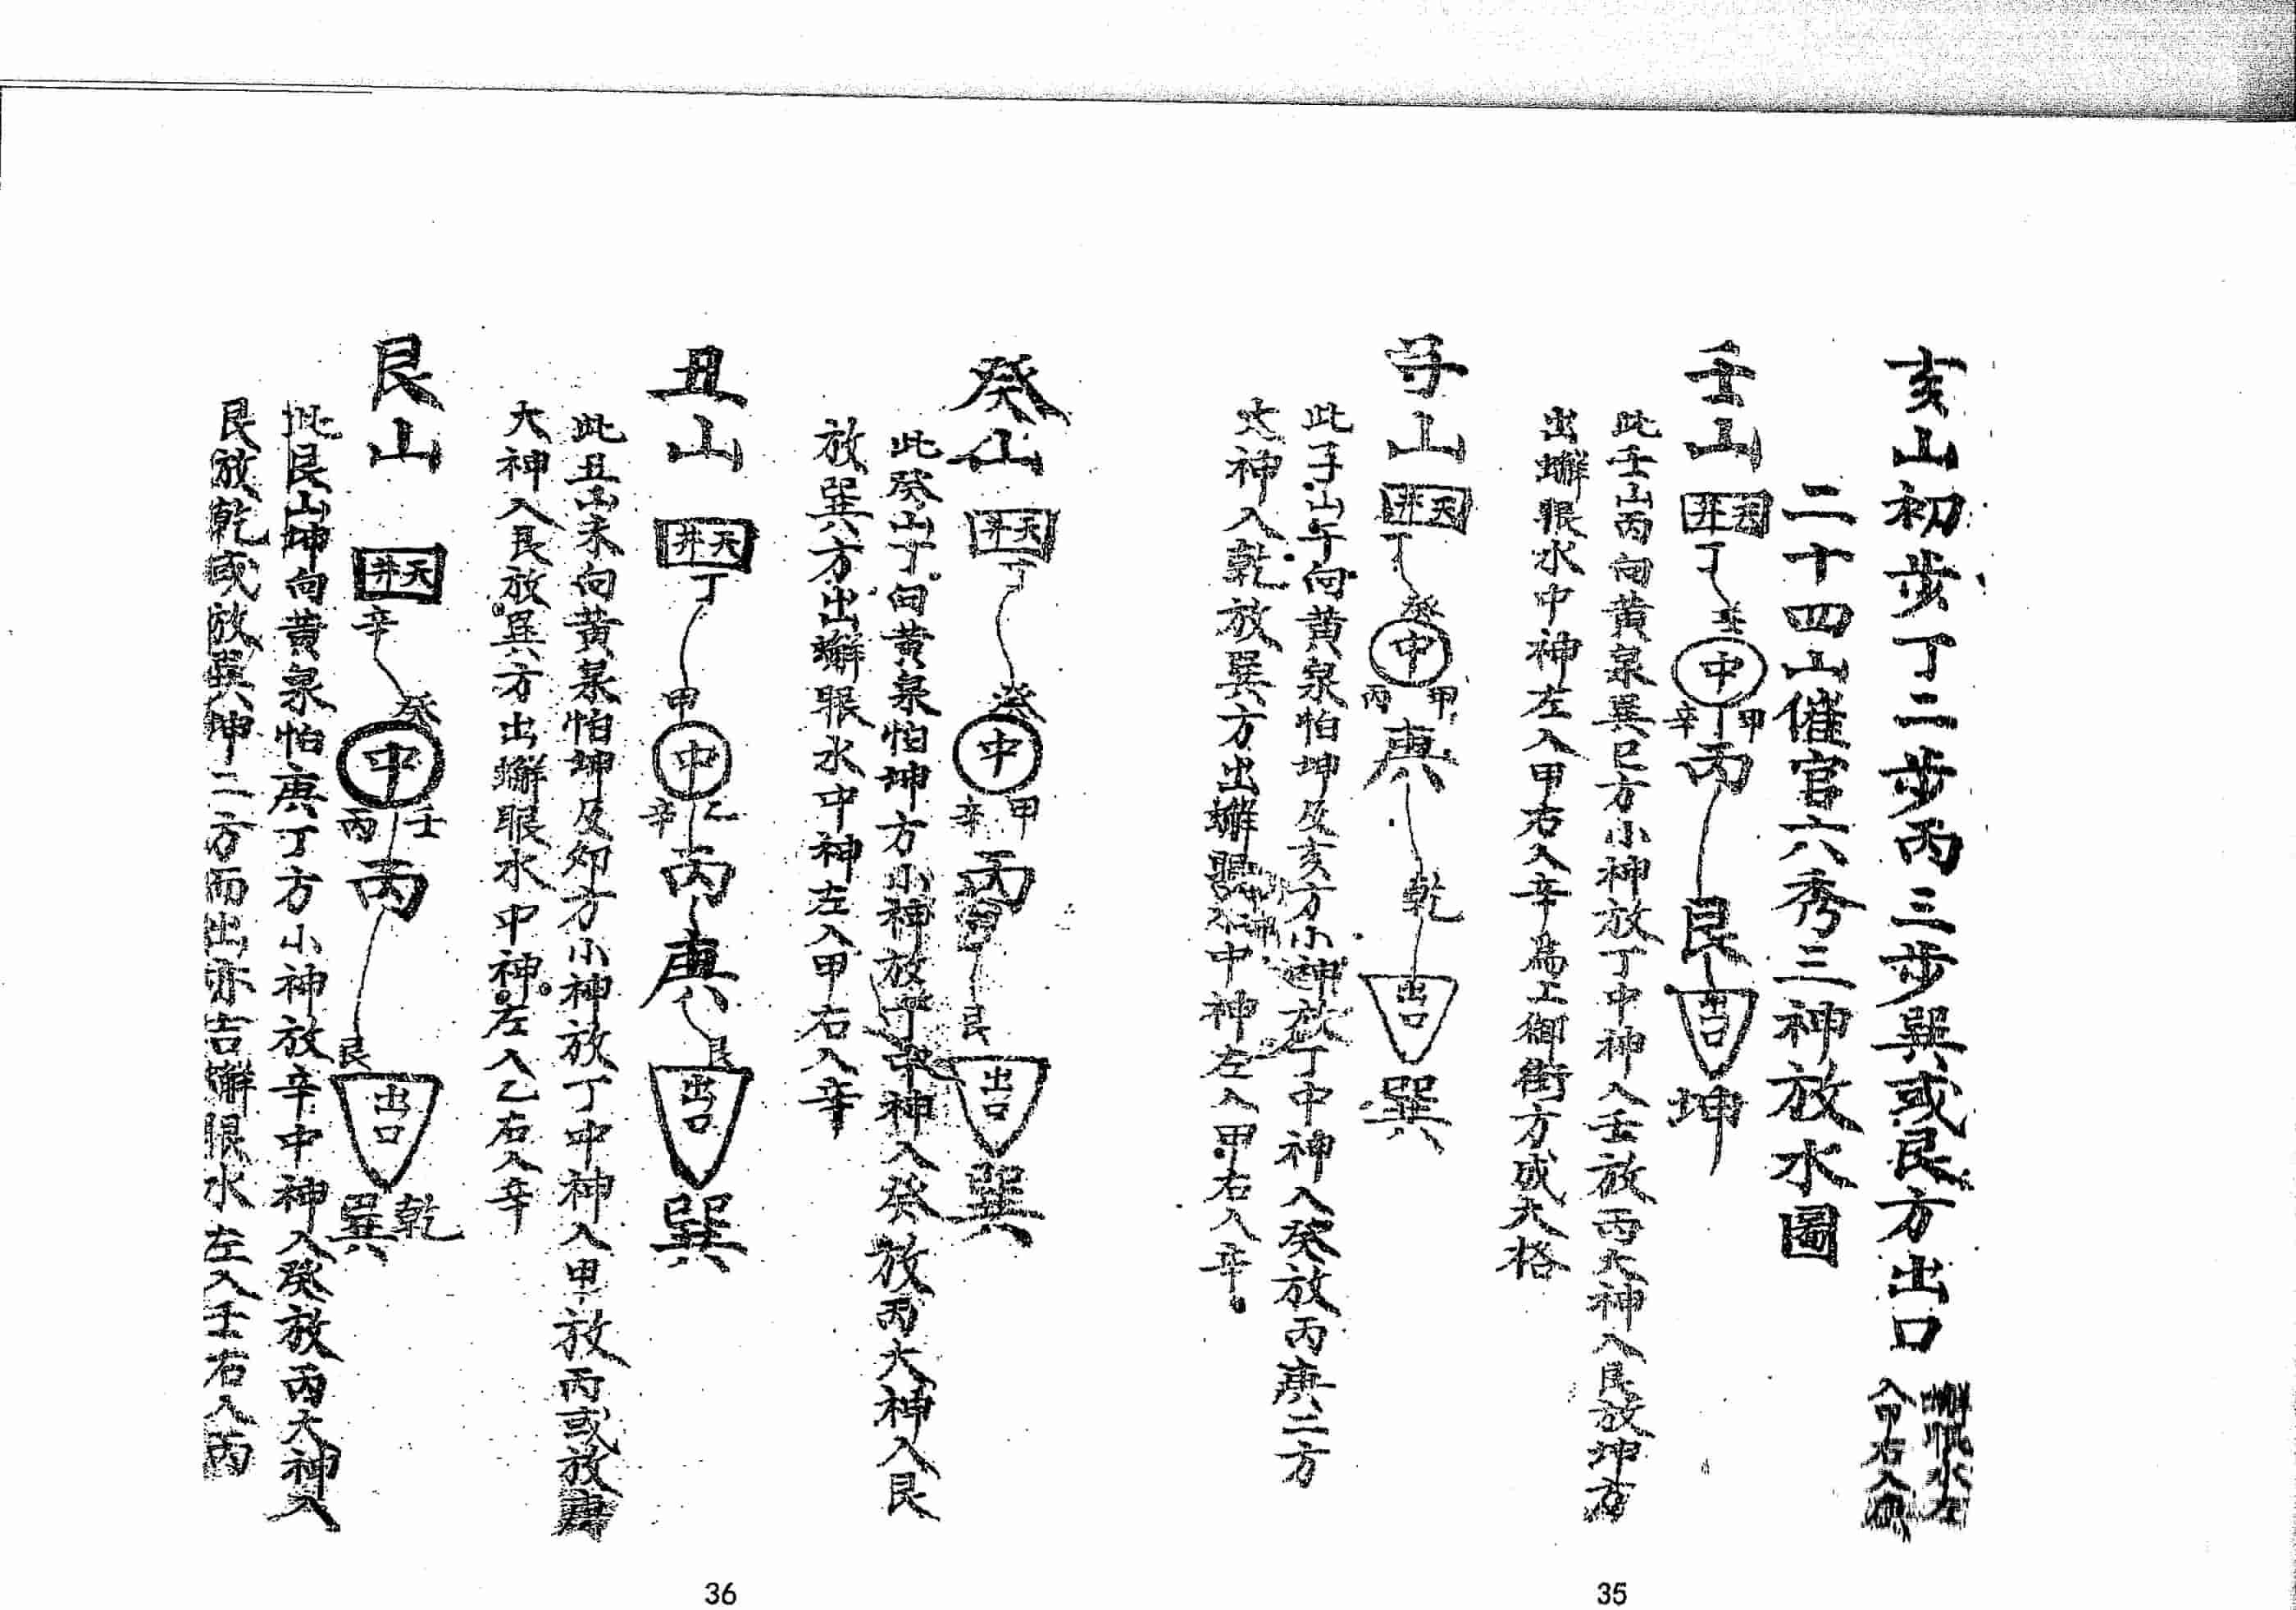 亥山初步丁二步丙三步巽或艮方出口
蠏眼水左
入甲右入
二十四山催官六秀三神放水圖
壬山
天井
丁
壬
中
甲
辛
丙
艮
出口
坤
此壬山丙向黄泉巽巳方小神放丁中神入壬放丙大神入艮放坤方
出蠏眼水中神左入甲右入辛為工御街方成大格
子山
天井
丁
癸
中
甲
丙
庚
乾
出口
巽
此子山午向黄泉怕坤及亥方小神放丁中神入癸放丙庚二方
大神入乾放巽方出蠏眼水中神左入甲右入辛
癸山
天井
丁
癸
中
甲
辛
丙
艮
出口
巽
此癸山丁向黄泉怕坤方小神放丁中神入癸放丙大神入艮
放巽方出蠏眼水中神左入甲右入辛
丑山
天井
丁
甲
中
乙
辛
丙
庚
艮
出口
巽
此丑山未向黄泉怕坤及卯方小神放丁中神入甲放丙或放庚
大神入艮放巽方出蠏眼水中神左入乙右入辛
艮山
天井
辛
癸
中
壬
丙
丙
艮
出口
乾
巽
此艮山坤向黄泉怕庚丁方小神放辛中神入癸放丙大神入
艮放乾或放巽坤二方而出亦吉蠏眼水左入壬右入丙
36
35